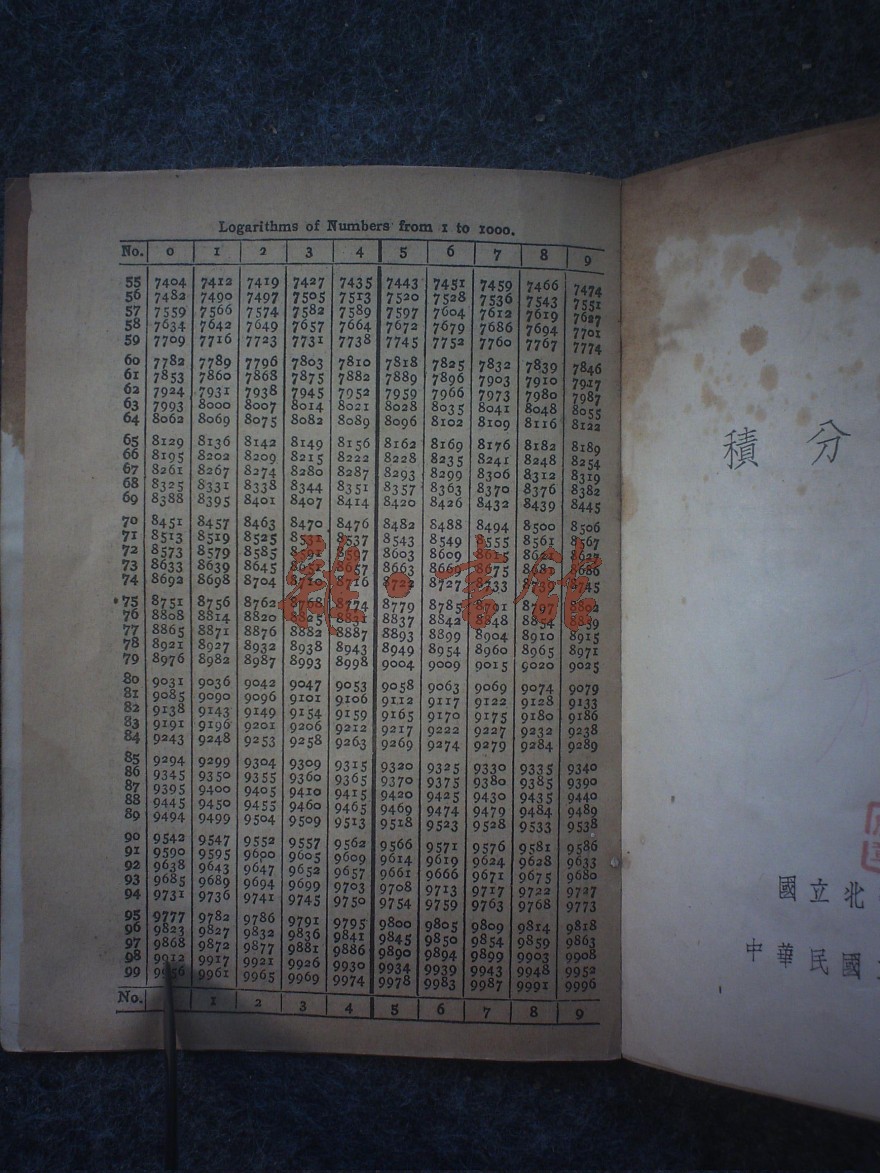 Logarithms of Numbers from 1 to 1000.
No. 0 1 2 3 4 5 6 7 8 9
55 7404 7412 7419 7427 7435 7443 7451 7459 7466 7474
56 7482 7490 7497 7505 7513 7520 7528 7536 7543 7551
57 7559 7566 7574 7582 7589 7597 7604 7612 7619 7627
58 7634 7642 7649 7657 7664 7672 7679 7686 7694 7701
59 7709 7716 7723 7731 7738 7745 7752 7760 7767 7774
60 7782 7789 7796 7803 7810 7818 7825 7832 7839 7846
61 7853 7860 7868 7875 7882 7889 7896 7903 7910 7917
62 7924 7931 7938 7945 7952 7959 7966 7973 7980 7987
63 7993 8000 8007 8014 8021 8028 8035 8041 8048 8055
64 8062 8069 8075 8082 8089 8096 8102 8109 8116 8122
65 8129 8136 8142 8149 8156 8162 8169 8176 8182 8189
66 8195 8202 8209 8215 8222 8228 8235 8241 8248 8254
67 8261 8267 8274 8280 8287 8293 8299 8306 8312 8319
68 8325 8331 8338 8344 8351 8357 8363 8370 8376 8382
69 8388 8395 8401 8407 8414 8420 8426 8432 8439 8445
70 8451 8457 8463 8470 8476 8482 8488 8494 8500 8506
71 8513 8519 8525 8531 8537 8543 8549 8555 8561 8567
72 8573 8579 8585 8591 8597 8603 8609 8615 8621 8627
73 8633 8639 8645 8651 8657 8663 8669 8675 8681 8686
74 8692 8698 8704 8710 8716 8722 8727 8733 8739 8745
75 8751 8756 8762 8768 8774 8779 8785 8791 8797 8802
76 8808 8814 8820 8825 8831 8837 8842 8848 8854 8859
77 8865 8871 8876 8882 8887 8893 8899 8904 8910 8915
78 8921 8927 8932 8938 8943 8949 8954 8960 8965 8971
79 8976 8982 8987 8993 8998 9004 9009 9015 9020 9025
80 9031 9036 9042 9047 9053 9058 9063 9069 9074 9079
81 9085 9090 9096 9101 9106 9112 9117 9122 9128 9133
82 9138 9143 9149 9154 9159 9165 9170 9175 9180 9186
83 9191 9196 9201 9206 9212 9217 9222 9227 9232 9238
84 9243 9248 9253 9258 9263 9269 9274 9279 9284 9289
85 9294 9299 9304 9309 9315 9320 9325 9330 9335 9340
86 9345 9350 9355 9360 9365 9370 9375 9380 9385 9390
87 9395 9400 9405 9410 9415 9420 9425 9430 9435 9440
88 9445 9450 9455 9460 9465 9469 9474 9479 9484 9489
89 9494 9499 9504 9509 9513 9518 9523 9528 9533 9538
90 9542 9547 9552 9557 9562 9566 9571 9576 9581 9586
91 9590 9595 9600 9605 9609 9614 9619 9624 9628 9633
92 9638 9643 9647 9652 9657 9661 9666 9671 9675 9680
93 9685 9689 9694 9699 9703 9708 9713 9717 9722 9727
94 9731 9736 9741 9745 9750 9754 9759 9763 9768 9773
95 9777 9782 9786 9791 9795 9800 9805 9809 9814 9818
96 9823 9827 9832 9836 9841 9845 9850 9854 9859 9863
97 9868 9872 9877 9881 9886 9890 9894 9899 9903 9908
98 9912 9917 9921 9926 9930 9934 9939 9943 9948 9952
99 9956 9961 9965 9969 9974 9978 9983 9987 9991 9996
No. 1 2 3 4 5 6 7 8 9
積分
國立北
中華民國